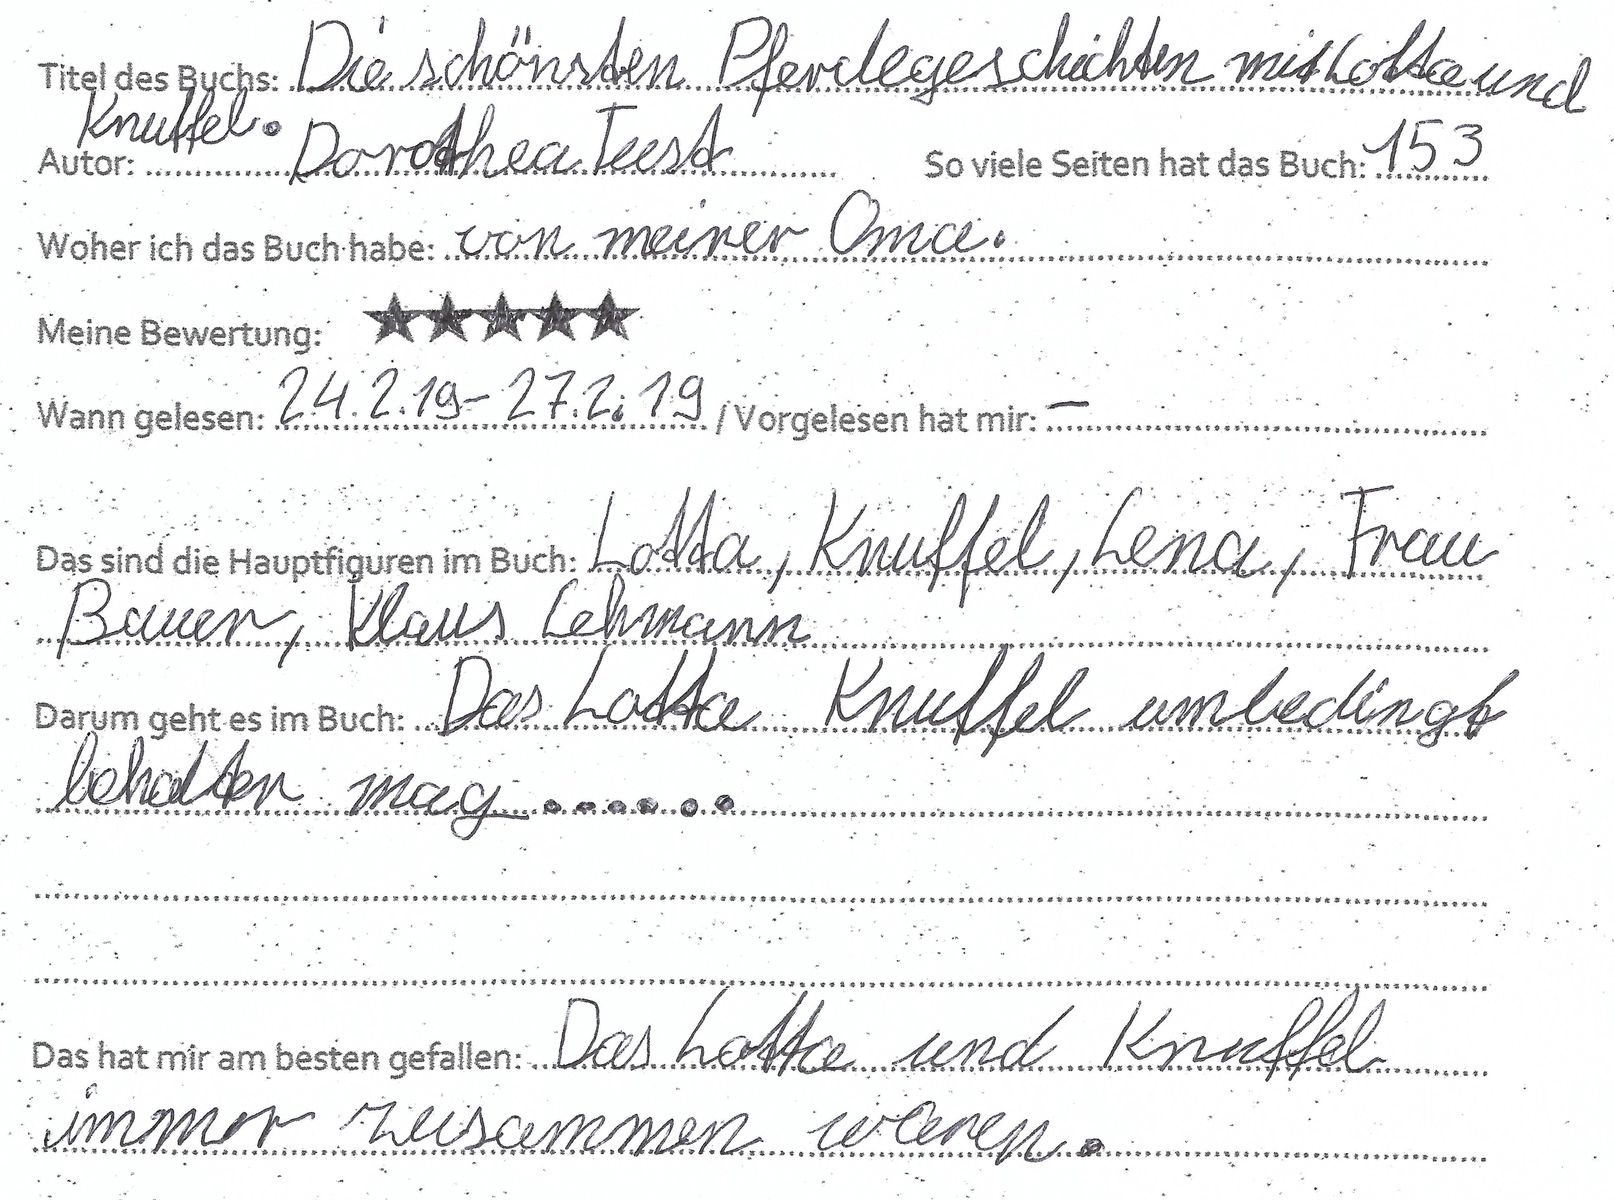 Titel des Buchs: Die schönsten Pferdegeschichten mit Lotta und
Knuffel.
Autor: Dorothea Tust So viele Seiten hat das Buch: 153
Woher ich das Buch habe: von meiner Oma.
Meine Bewertung: ★★★★★
Wann gelesen: 24.2.19- 27.2.19 / Vorgelesen hat mir: –
Das sind die Hauptfiguren im Buch: Lotta, Knuffel, Lena, Frau
Bauer, Klaus Lehmann
Darum geht es im Buch: Das Lotta Knuffel umbedingt
behalten mag ......
Das hat mir am besten gefallen: Das Lotta und Knuffel
immer zusammen waren.